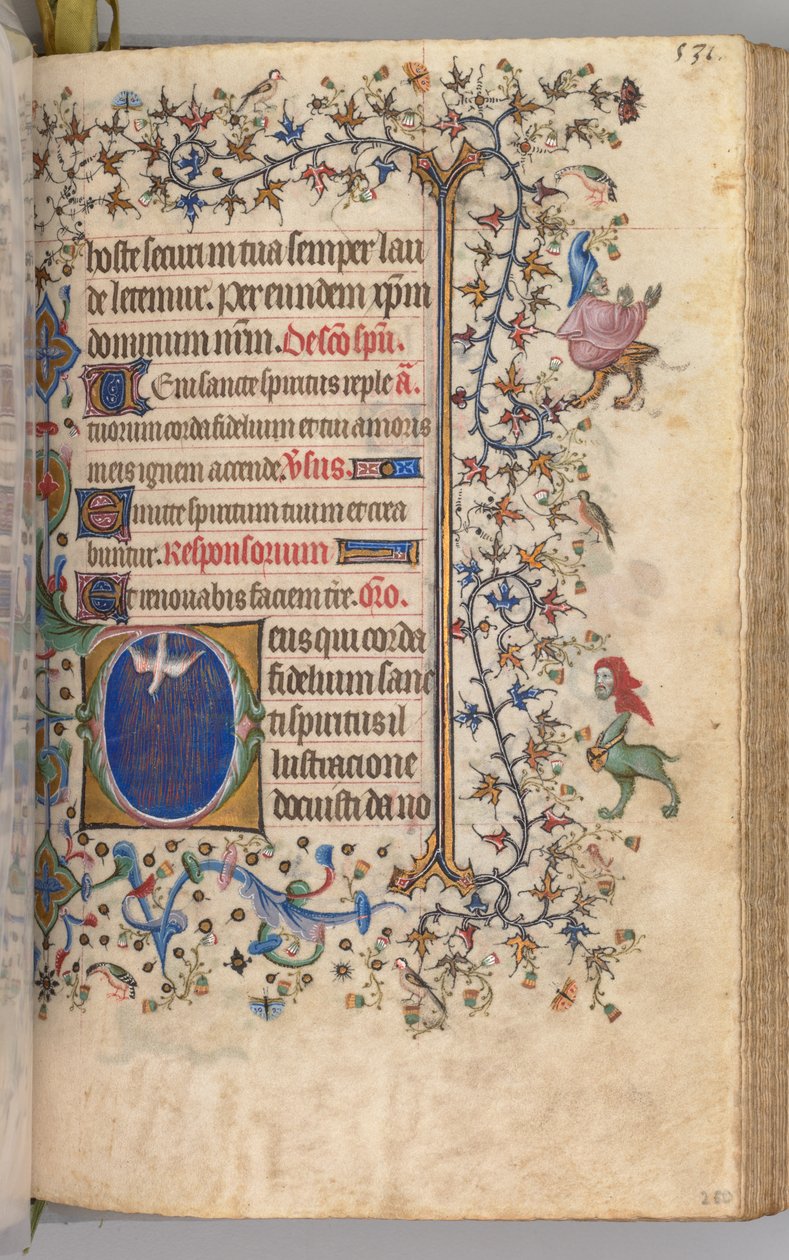 531.
hoste securi in tua semper lau
de letemur. Per eundem xp̄m
dominum nr̄m. De sc̄o spū.
Veni sancte spiritus reple a̅.
tuorum corda fidelium et tui amoris
in eis ignem accende. V̅sus.
Emitte spiritum tuum et crea
buntur. Responsorium
Et renovabis faciem tr̄e. Or̄o.
Deus qui corda
fidelium sanc
ti spiritus il
lustracione
docuisti da no
260